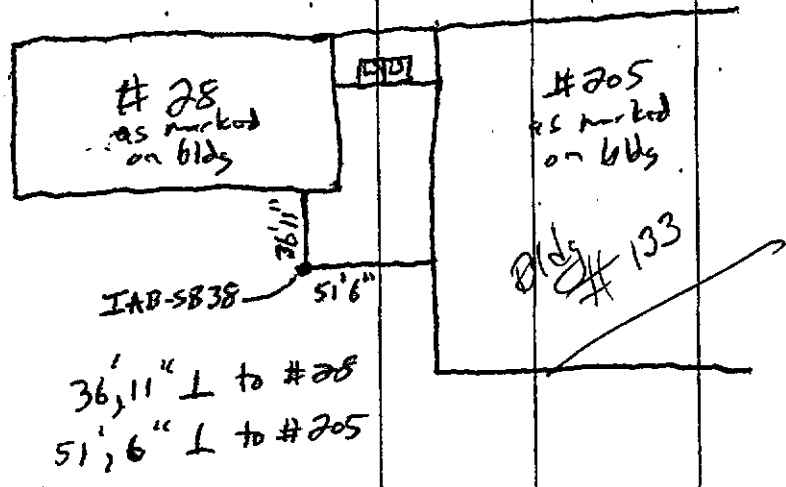 # 28
as marked
on bldg
#205
as marked
on bldg
Bldg # 133
36'11"
51'6"
IAB-S838
36', 11" ⊥ to #28
51', 6" ⊥ to #205